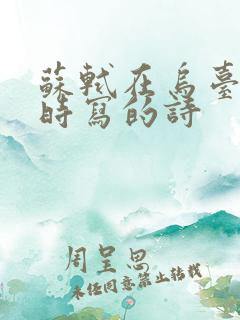 蘇軾在烏臺
時寫的詩
周呈思
未經同意禁止轉載